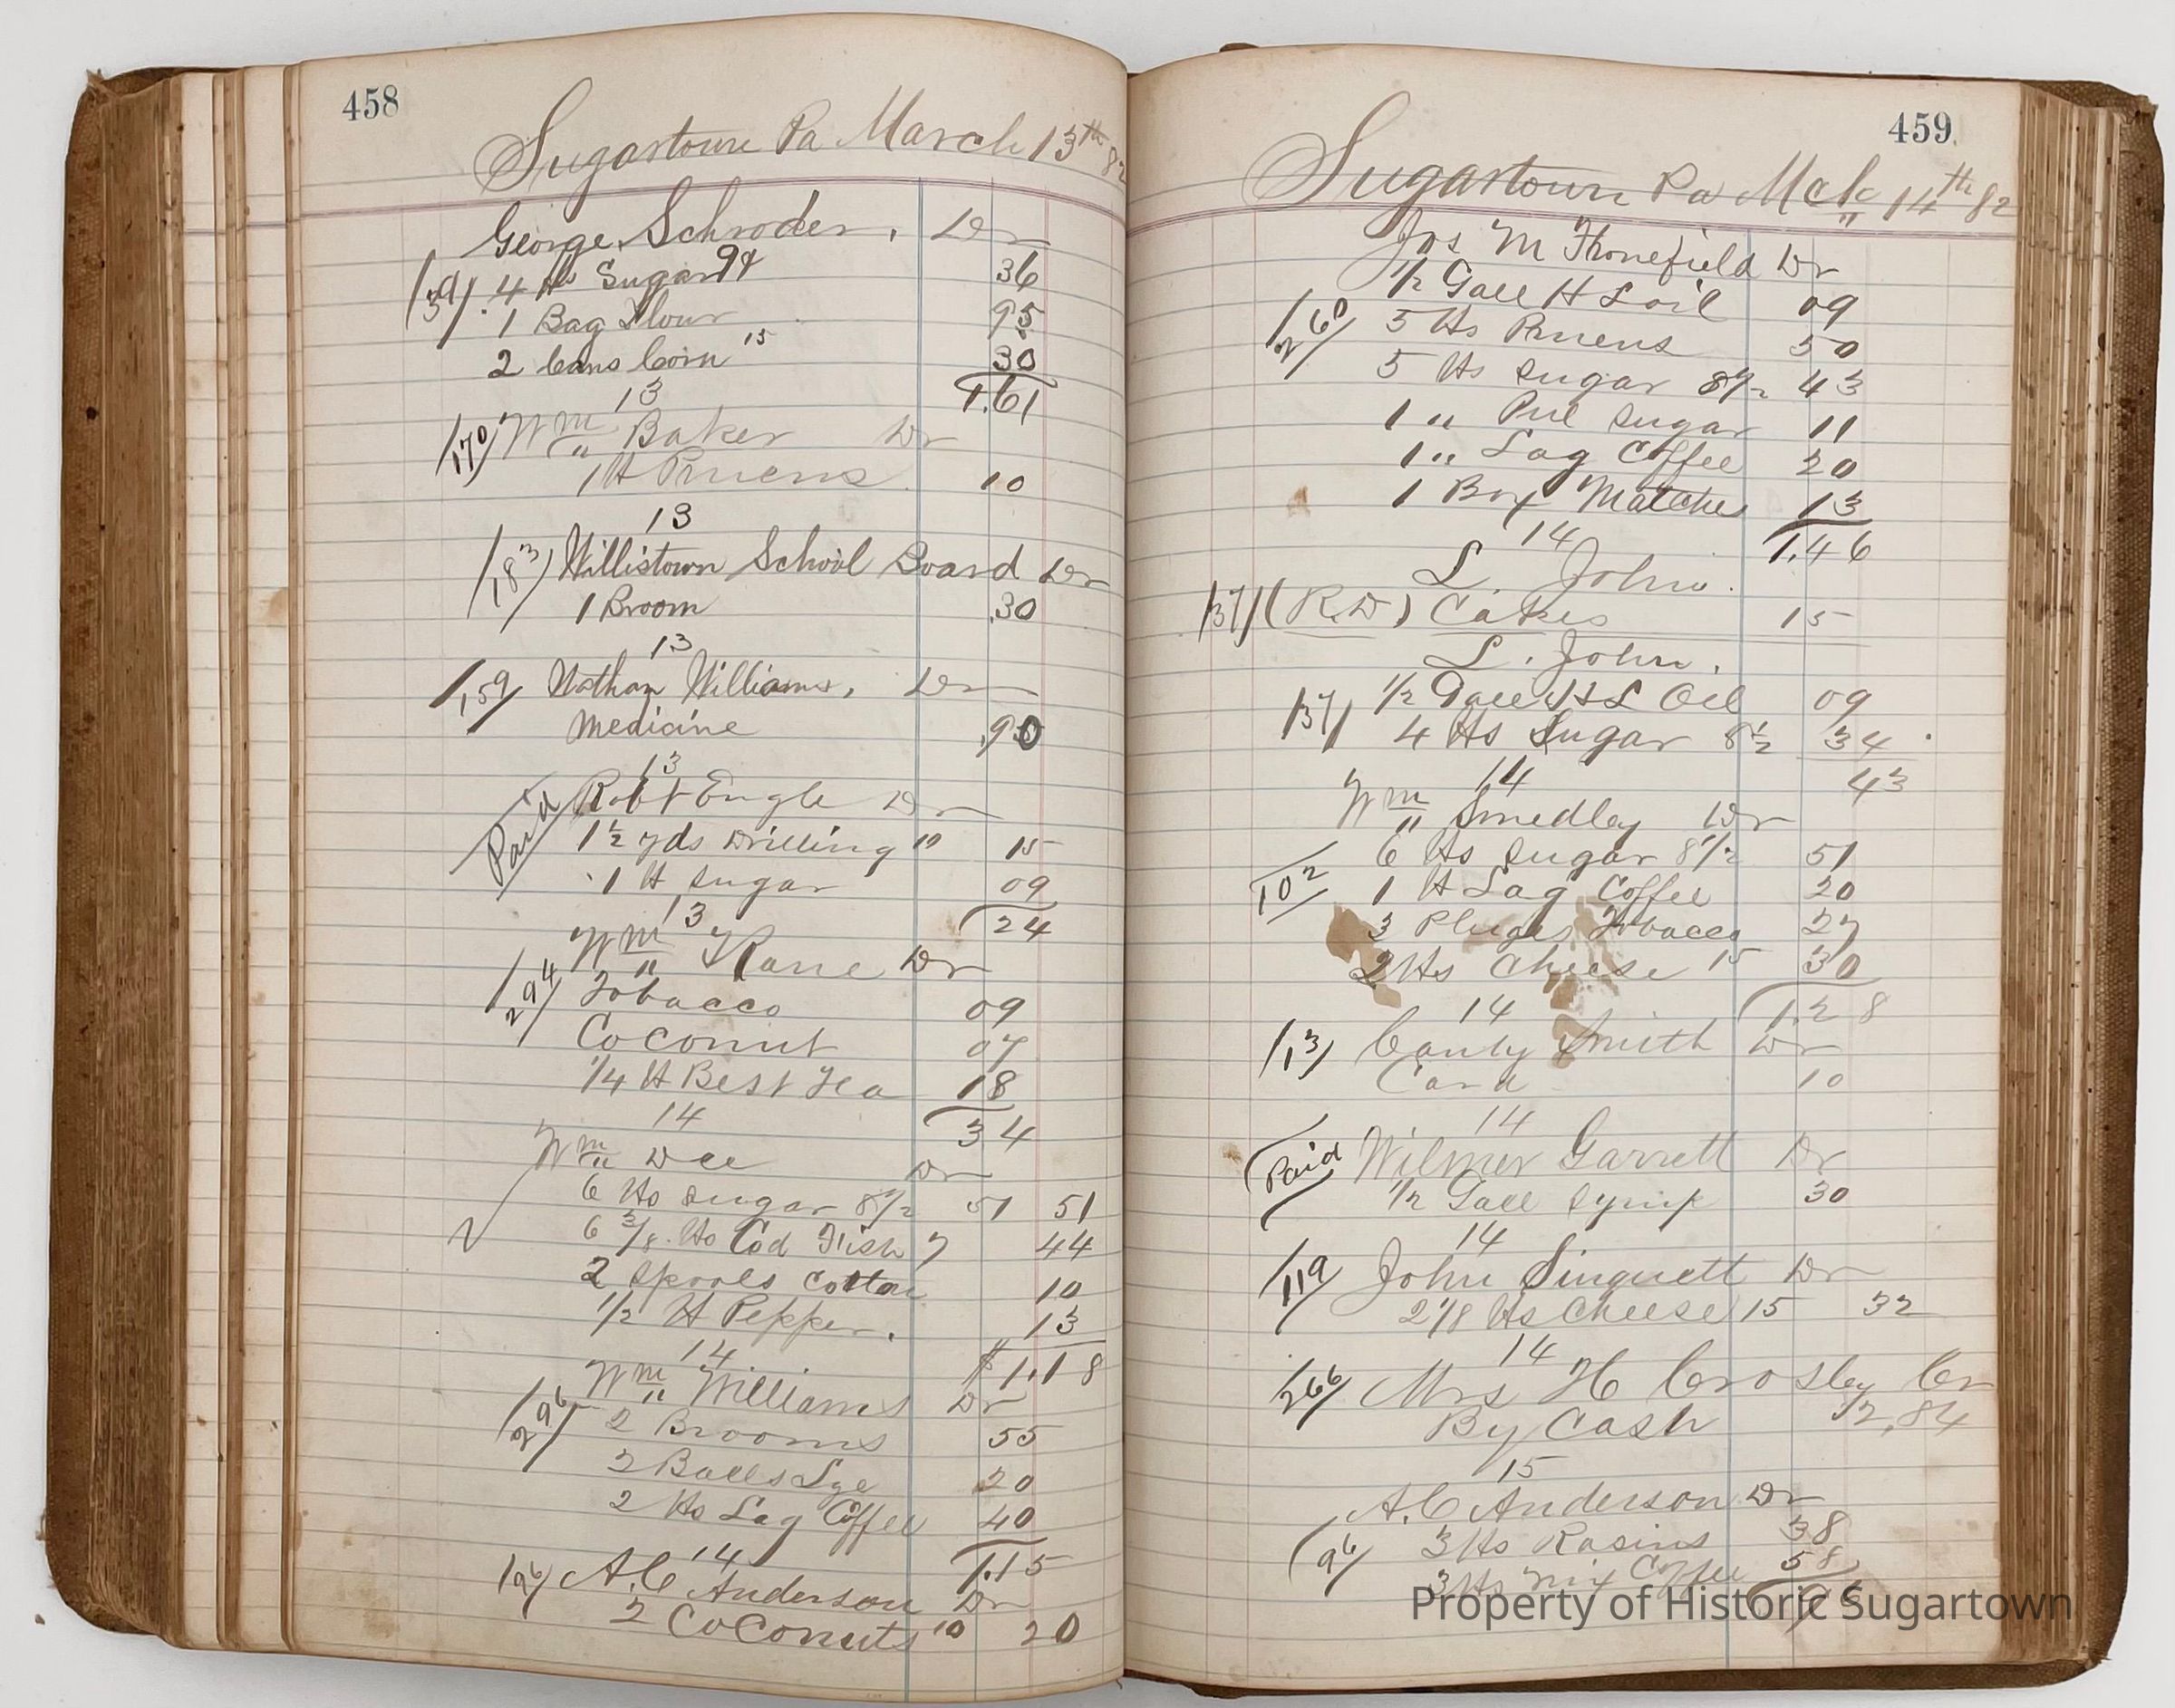 458
Sugartown Pa March 13th 82
George Schroder, Dr
159/ 4 lbs Sugar 9¢ 36
1 Bag Flour 95
2 Cans Corn 15 30
1.61
13
170/ Wm Baker Dr
1 lb Pruens 10
13
183/ Willistown School Board Dr
1 Broom .30
13
159/ Nathan Williams, Dr
Medicine .90
13
Paid Robt Engle Dr
1 1/2 yds Drilling 10 15
1 lb Sugar 09
24
13
Wm Kane Dr
294/ Tobacco 09
CoConut 07
1/4 lb Best Tea 18
34
14
Wm Dee Dr
6 lbs Sugar 8 1/2 51 51
6 3/8 lbs Cod Fish 7 44
2 Spools Cotton 10
1/2 lb Pepper. 13
$1.18
14
Wm Williams Dr
296/ 2 Brooms 55
2 Balls Lye 20
2 lbs Lag Coffee 40
1.15
14
196/ A.C Anderson Dr
2 CoConuts 10 20
459
Sugartown Pa Mch 14th 82
Jos M Thonefield Dr
1/2 Gall H L oil 09
260/ 5 lbs Pruens 50
5 lbs Sugar 8 1/2 43
1 " Pul Sugar 11
1 " Lag Coffee 20
1 Box Matches 13
1.46
14
L. John.
137/ (R.D) Cakes 15
L. John.
1/2 Gall H L Oil 09
137/ 4 lbs Sugar 8 1/2 34
43
14
Wm Smedley Dr
6 lbs Sugar 8 1/2 51
102 1 lb Lag Coffee 20
3 Pluges Tobacco 27
2 lbs Cheese 15 30
1.28
14
113/ Smith Dr
10
14
Paid Wilmer Garrett Dr
1/2 Gall Syrup 30
14
119/ John Singuett Dr
2 1/8 lbs Cheese 15 32
14
266/ Mrs H Crosley Cr
By Cash 12,84
15
A.C Anderson Dr
96/ 3 lbs Rasins 38
3 lbs Mix Coffee 58
Property of Historic Sugartown